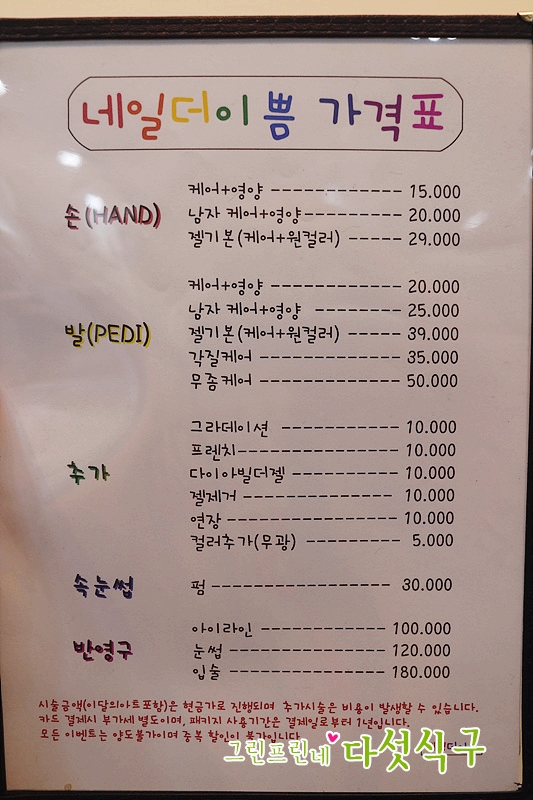 네일더이쁨 가격표
손(HAND)
케어+영양 15.000
남자 케어+영양 20.000
젤기본(케어+원컬러) 29.000
발(PEDI)
케어+영양 20.000
남자 케어+영양 25.000
젤기본(케어+원컬러) 39.000
각질케어 35.000
무좀케어 50.000
추가
그라데이션 10.000
프렌치 10.000
다이아빌더젤 10.000
젤제거 10.000
연장 10.000
컬러추가(무광) 5.000
속눈썹
펌 30.000
반영구
아이라인 100.000
눈썹 120.000
입술 180.000
시술금액(이달의아트포함)은 현금가로 진행되며 추가시술은 비용이 발생할 수 있습니다.
카드 결제시 부가세 별도이며, 패키지 사용기간은 결제일로부터 1년입니다.
모든 이벤트는 양도불가이며 중복 할인이 불가입니다.
그린프린네♥다섯식구